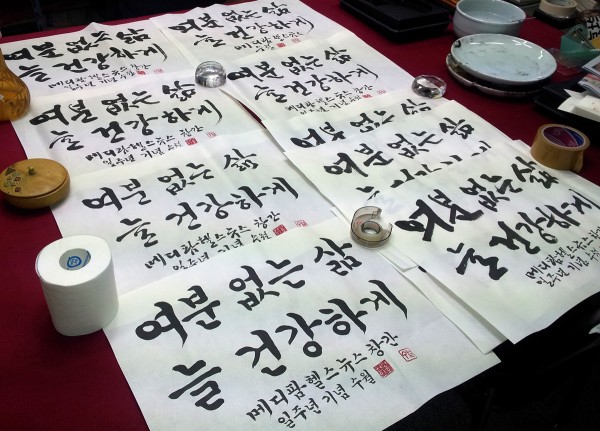 여분 없는 삶
늘 건강하게
메디팜헬스뉴스 창간
여분 없는 삶
늘 건강하게
메디팜헬스뉴스 창간
일주년 기념 수월
여분 없는 삶
늘 건강하게
메디팜헬스뉴스 창간
일주년 기념 수월
여분 없는 삶
늘 건강하게
메디팜헬스뉴스 창간
일주년 기념 수월
여분 없는 삶
늘 건강하게
메디팜헬스뉴스 창간
일주년 기념 수월
여분 없는
여분 없는 삶
여분 없는 삶
늘 건강하게
메디팜헬스뉴스 창간
일주년 기념 수월
여분 없는 삶
늘 건강하게
메디팜헬스뉴스 창간
일주년 기념 수월